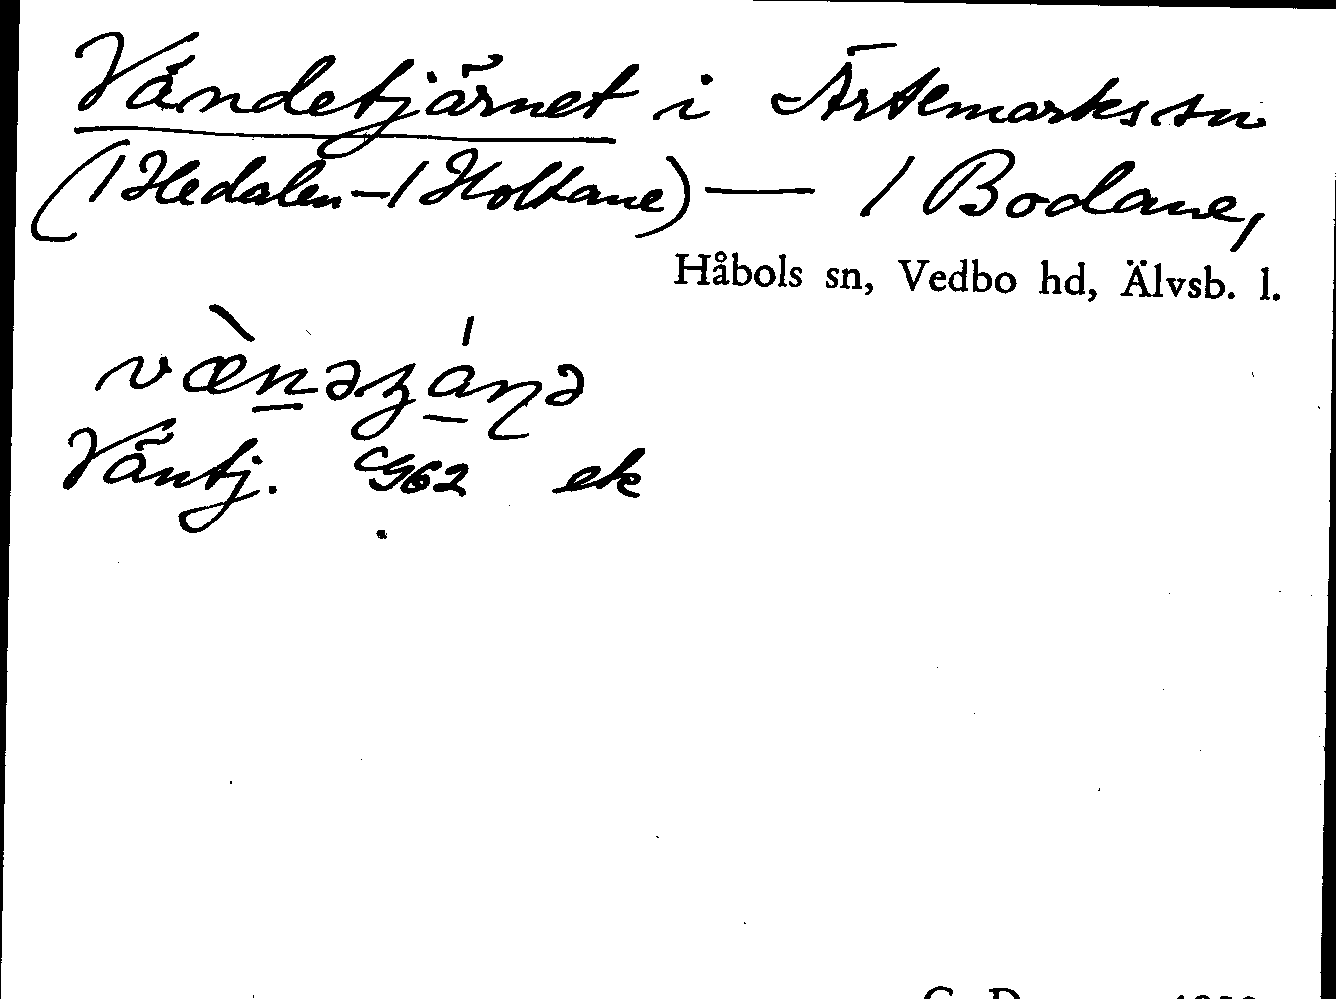 Vändetjärnet i Ärtemarks sn
(/ Hedalen – / Holtane) — / Bodane,
Håbols sn, Vedbo hd, Älvsb. l.
væ̀nəʒáɳə
Väntj. G62 ek